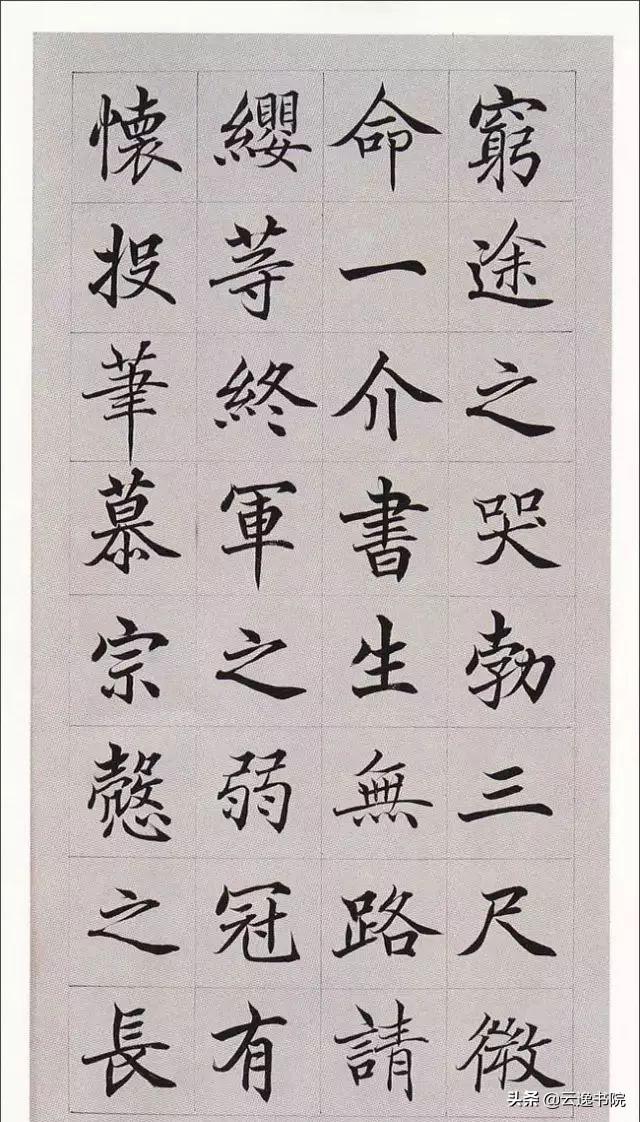 窮途之哭勃三尺微
命一介書生無路請
纓等終軍之弱冠有
懷投筆慕宗慤之長
头条 @云逸书院